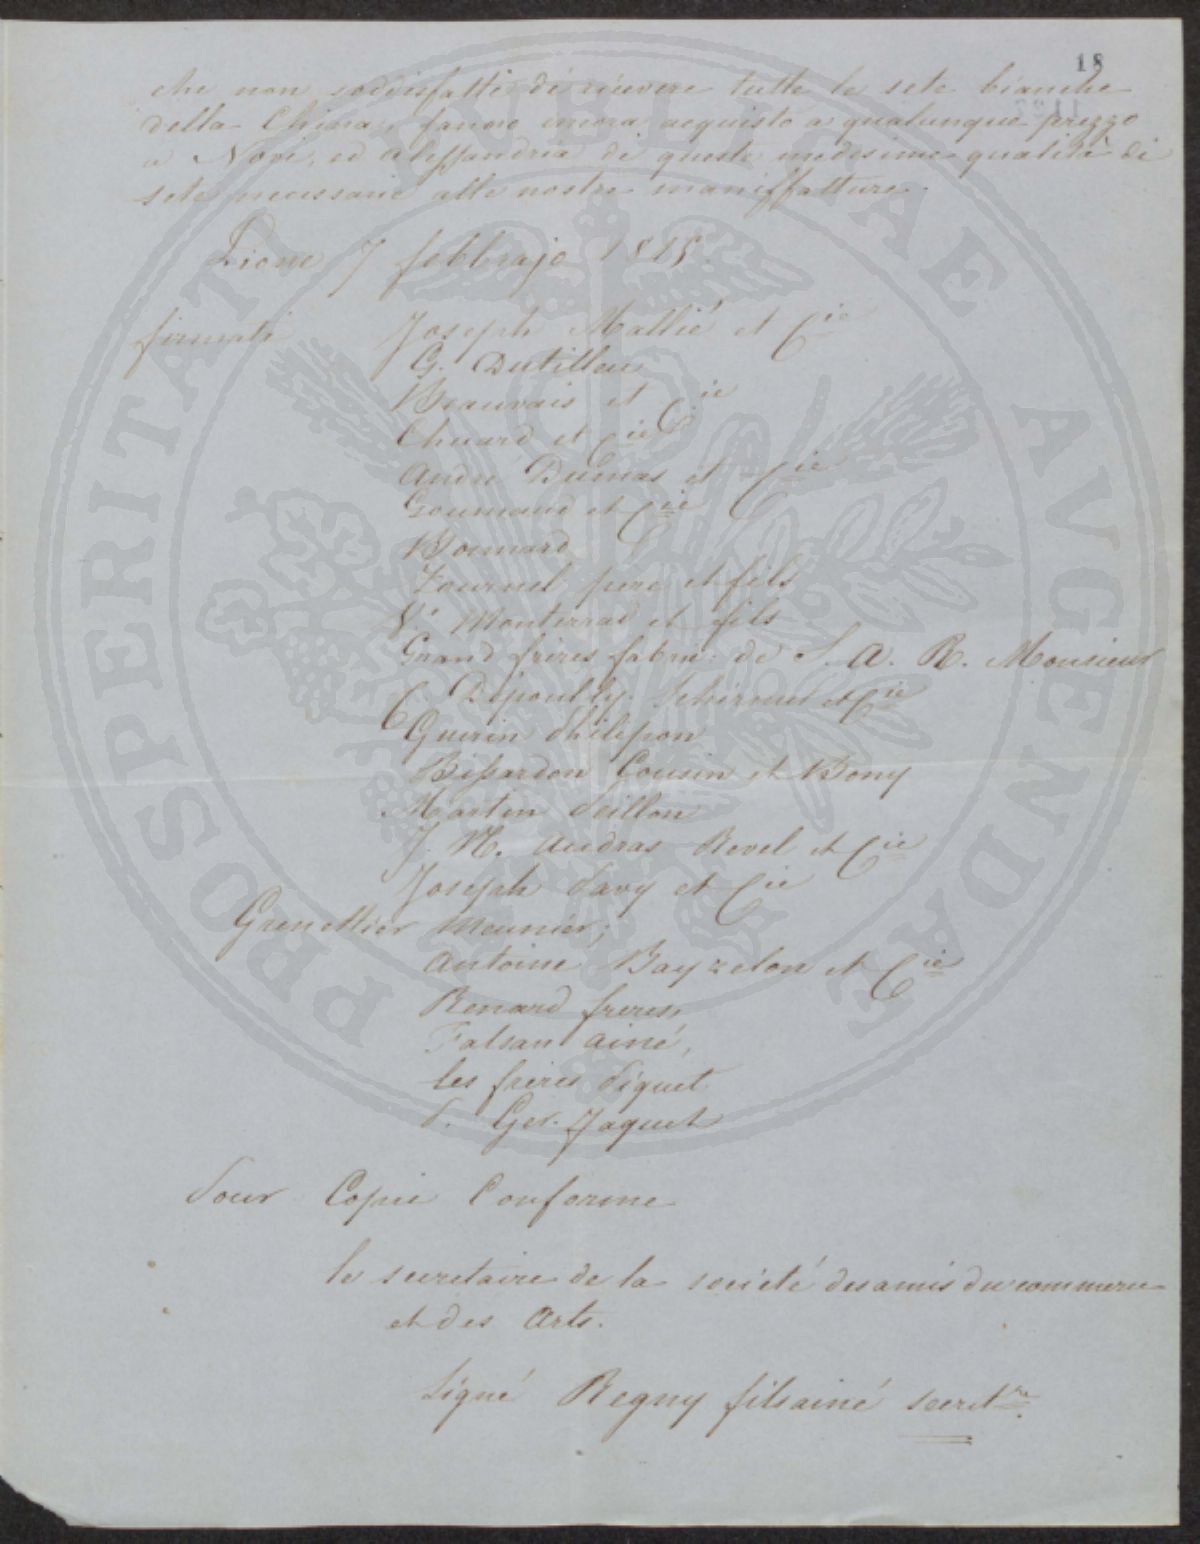 18
che non soddisfatti di ricevere tutte le sete bianche
della China, fanno ancora acquisto a qualunque prezzo
a Novi, ed Alessandria di queste medesime qualità di
sete necessarie alle nostre maniffatture.
Lione 7 febbrajo 1815.
firmati Joseph Mallié et Cie
G. Dutillieu
Beauvais et Cie
Chuard et Cie
André Dumas et Cie
Gourmand et Cie
Bonnard
Fournel père et fils
Vr Monterrad et fils
Grand frères fabric: de S. A. R. Monsieur
C. Depouilly Schirmer et Cie
Guerin Philipon
Bissardon Cousin et Bony
Martin Peillon
J. M. Audras Revel et Cie
Joseph Pavy et Cie
Meunier;
Antoine Bayzelon et Cie
Renard freres,
Falsan ainé,
les frères Piquet
P. Ger. Jaquet
Pour Copie Conforme
le secretaire de la société des amis du commerce
et des Arts.
Signé Regny fils ainé secretre.
PROSPERITATI PUBLICAE AUGENDAE